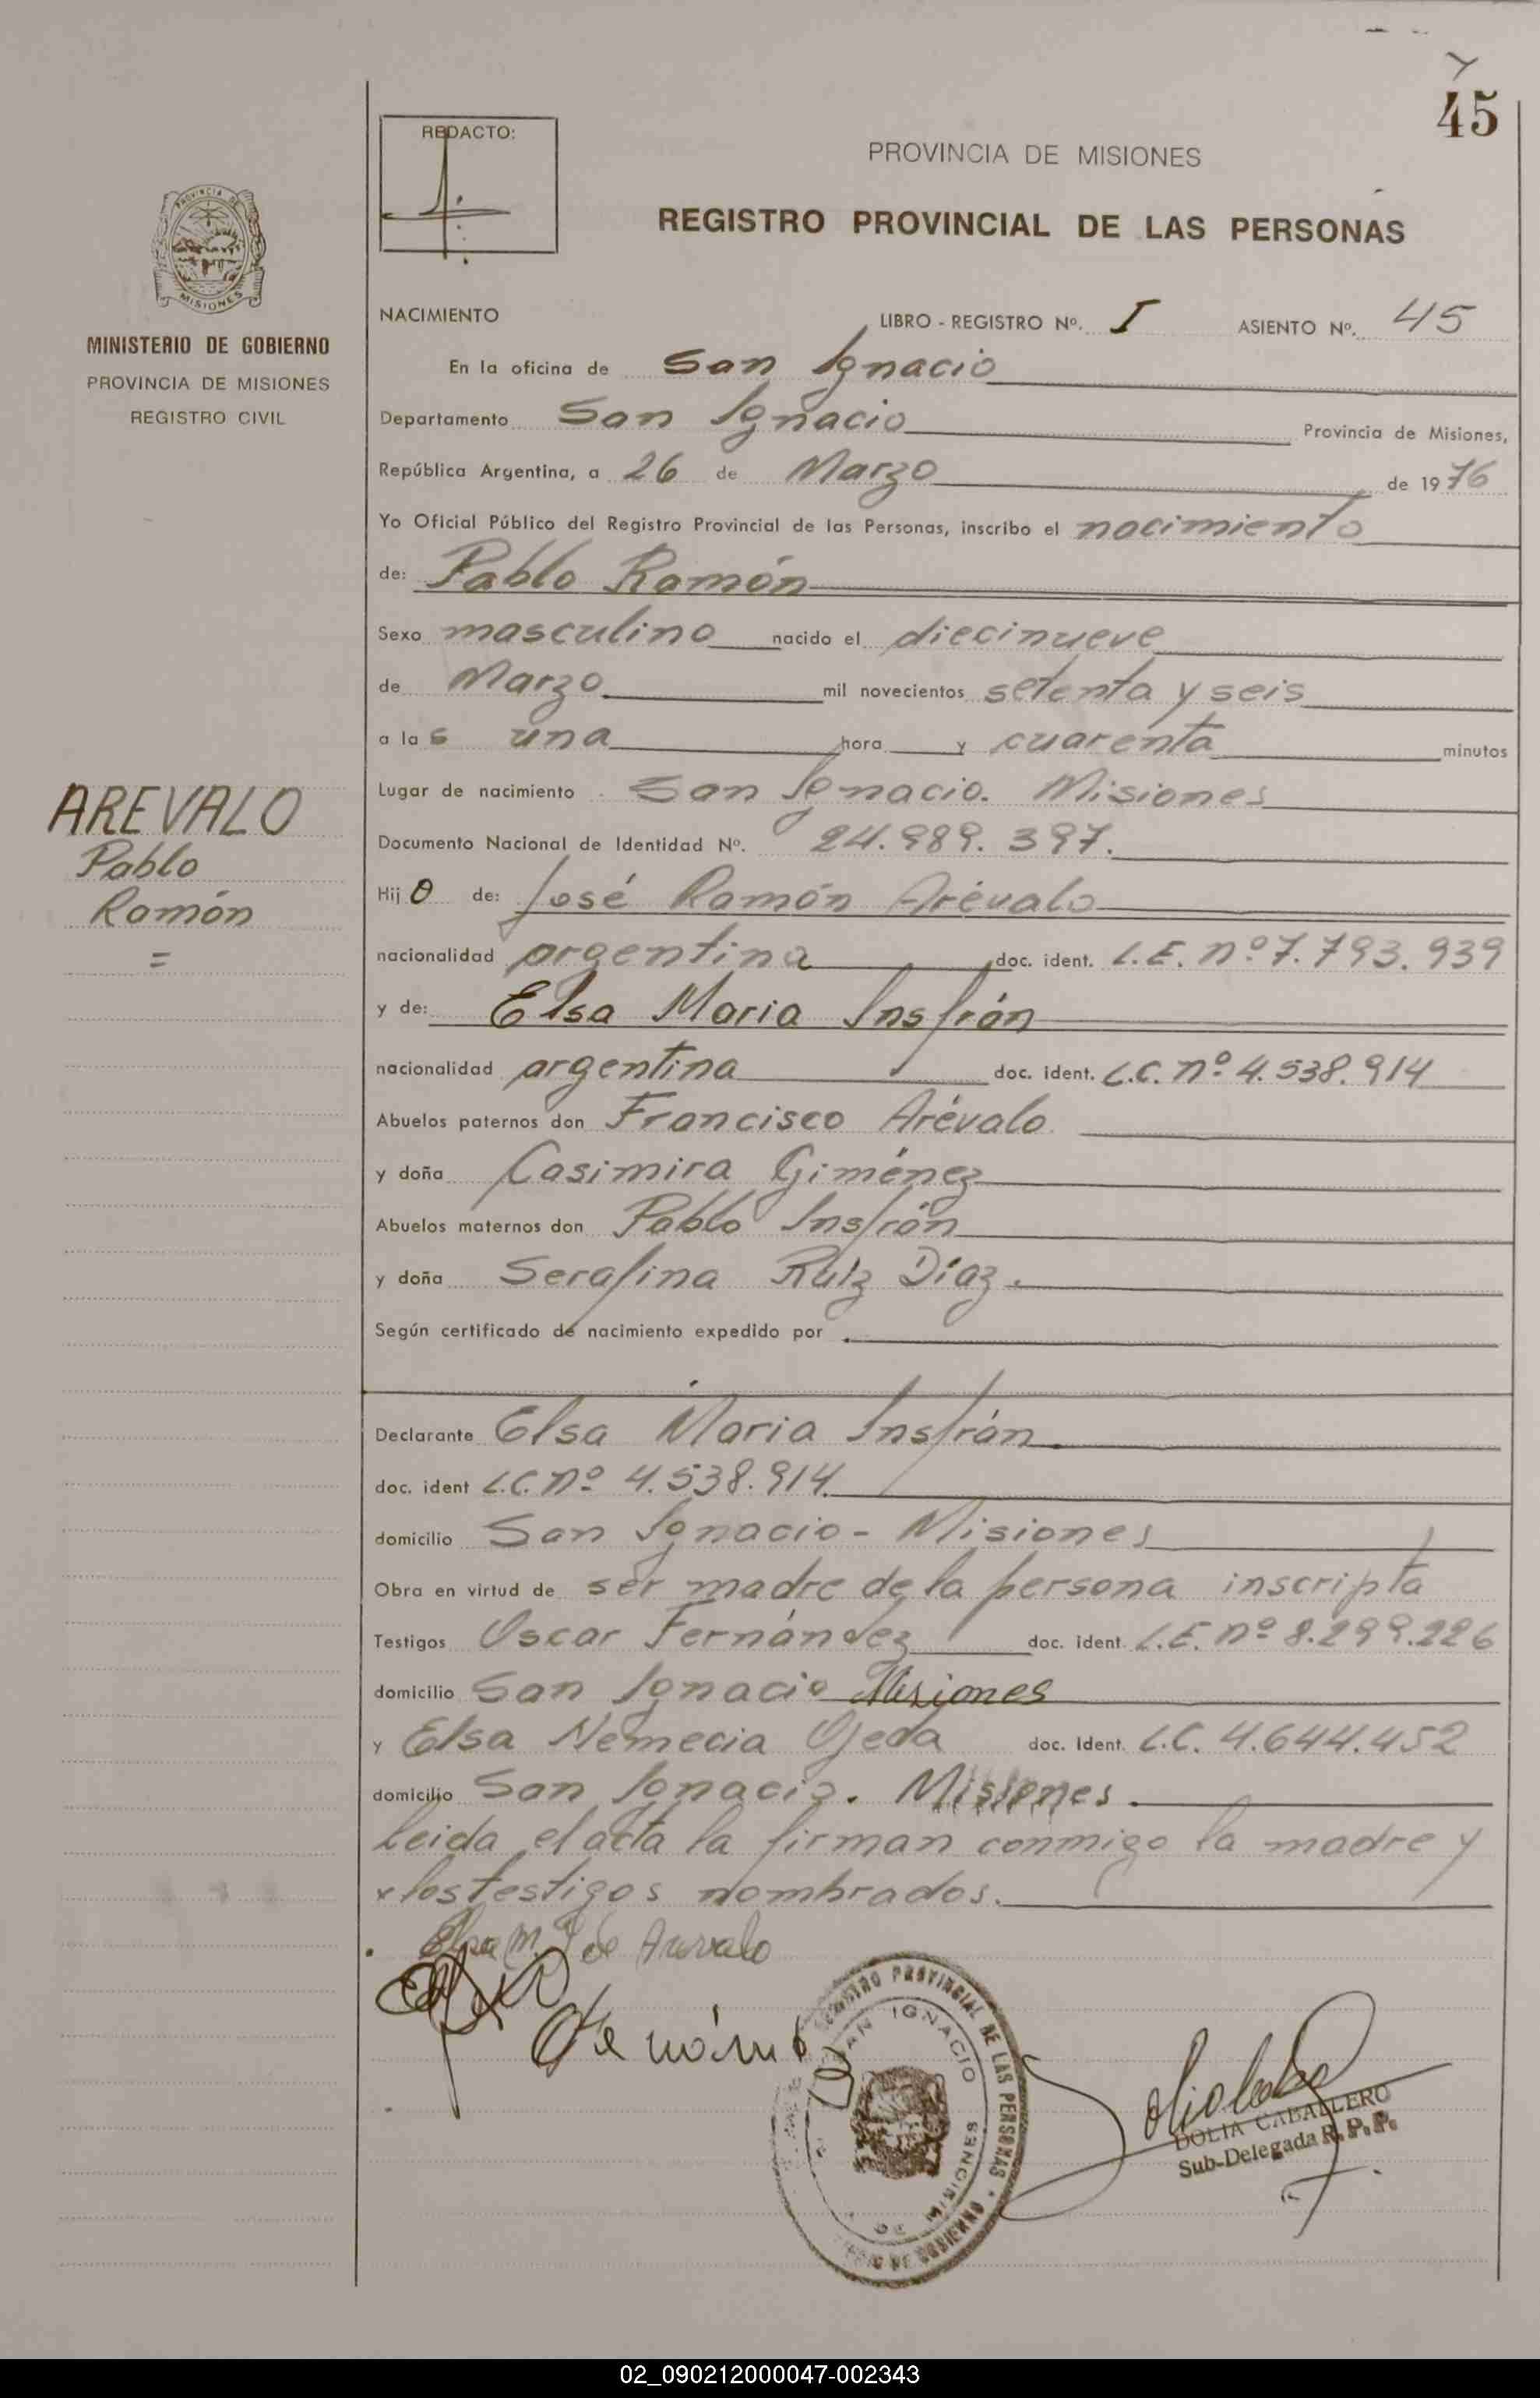 45
REDACTO:
PROVINCIA DE MISIONES
REGISTRO PROVINCIAL DE LAS PERSONAS
PROVINCIA DE
MISIONES
MINISTERIO DE GOBIERNO
PROVINCIA DE MISIONES
REGISTRO CIVIL
NACIMIENTO LIBRO - REGISTRO Nº. I ASIENTO Nº. 45
En la oficina de San Ignacio
Departamento San Ignacio Provincia de Misiones,
República Argentina, a 26 de Marzo de 1976
Yo Oficial Público del Registro Provincial de las Personas, inscribo el nacimiento
de: Pablo Ramón
Sexo masculino nacido el diecinueve
de Marzo mil novecientos setenta y seis
a las una hora y cuarenta minutos
Lugar de nacimiento San Ignacio. Misiones
AREVALO
Pablo
Ramón
=
Documento Nacional de Identidad Nº. 24.989.397.
Hijo de: José Ramón Arévalo
nacionalidad argentina doc. ident. L.E. nº 7.793.939
y de: Elsa Maria Insfrán
nacionalidad argentina doc. ident. L.C. nº 4.538.914
Abuelos paternos don Francisco Arévalo
y doña Casimira Giménez
Abuelos maternos don Pablo Insfrán
y doña Serafina Ruiz Díaz.
Según certificado de nacimiento expedido por
Declarante Elsa Maria Insfrán
doc. ident L.C. nº 4.538.914
domicilio San Ignacio - Misiones
Obra en virtud de ser madre de la persona inscripta
Testigos Oscar Fernández doc. ident. L.E. nº 8.299.226
domicilio San Ignacio Misiones
y Elsa Nemecia Ojeda doc. Ident. L.C. 4.644.452
domicilio San Ignacio. Misiones
leida el acta la firman conmigo la madre y
los testigos nombrados.
Elsa M. I de Arevalo
REGISTRO PROVINCIAL DE LAS PERSONAS
SAN IGNACIO
MISIONES
DE GOBIERNO
DOLIA CABALLERO
Sub-Delegada R.P.P.
02_090212000047-002343